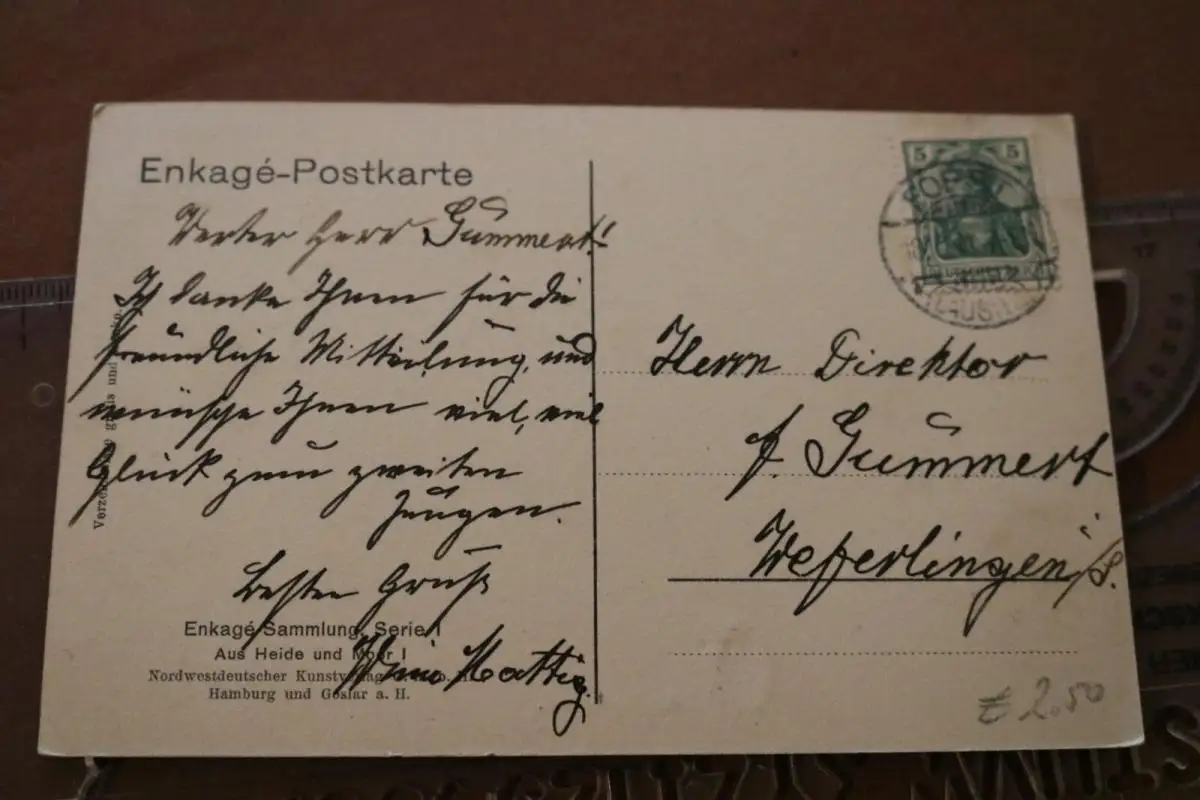 Enkagé-Postkarte
Werter Herr Gummert!
Ich danke Ihnen für die
freundliche Mitteilung, und
wünsche Ihnen viel, viel
Glück zum zweiten
Jungen.
Besten Gruß
Mattig.
Enkagé Sammlung, Serie I
Aus Heide und Moor I
Nordwestdeutscher
Hamburg und Goslar a. H.
5 5
Herrn Direktor
F. Gummert
Weferlingen
2.50
17